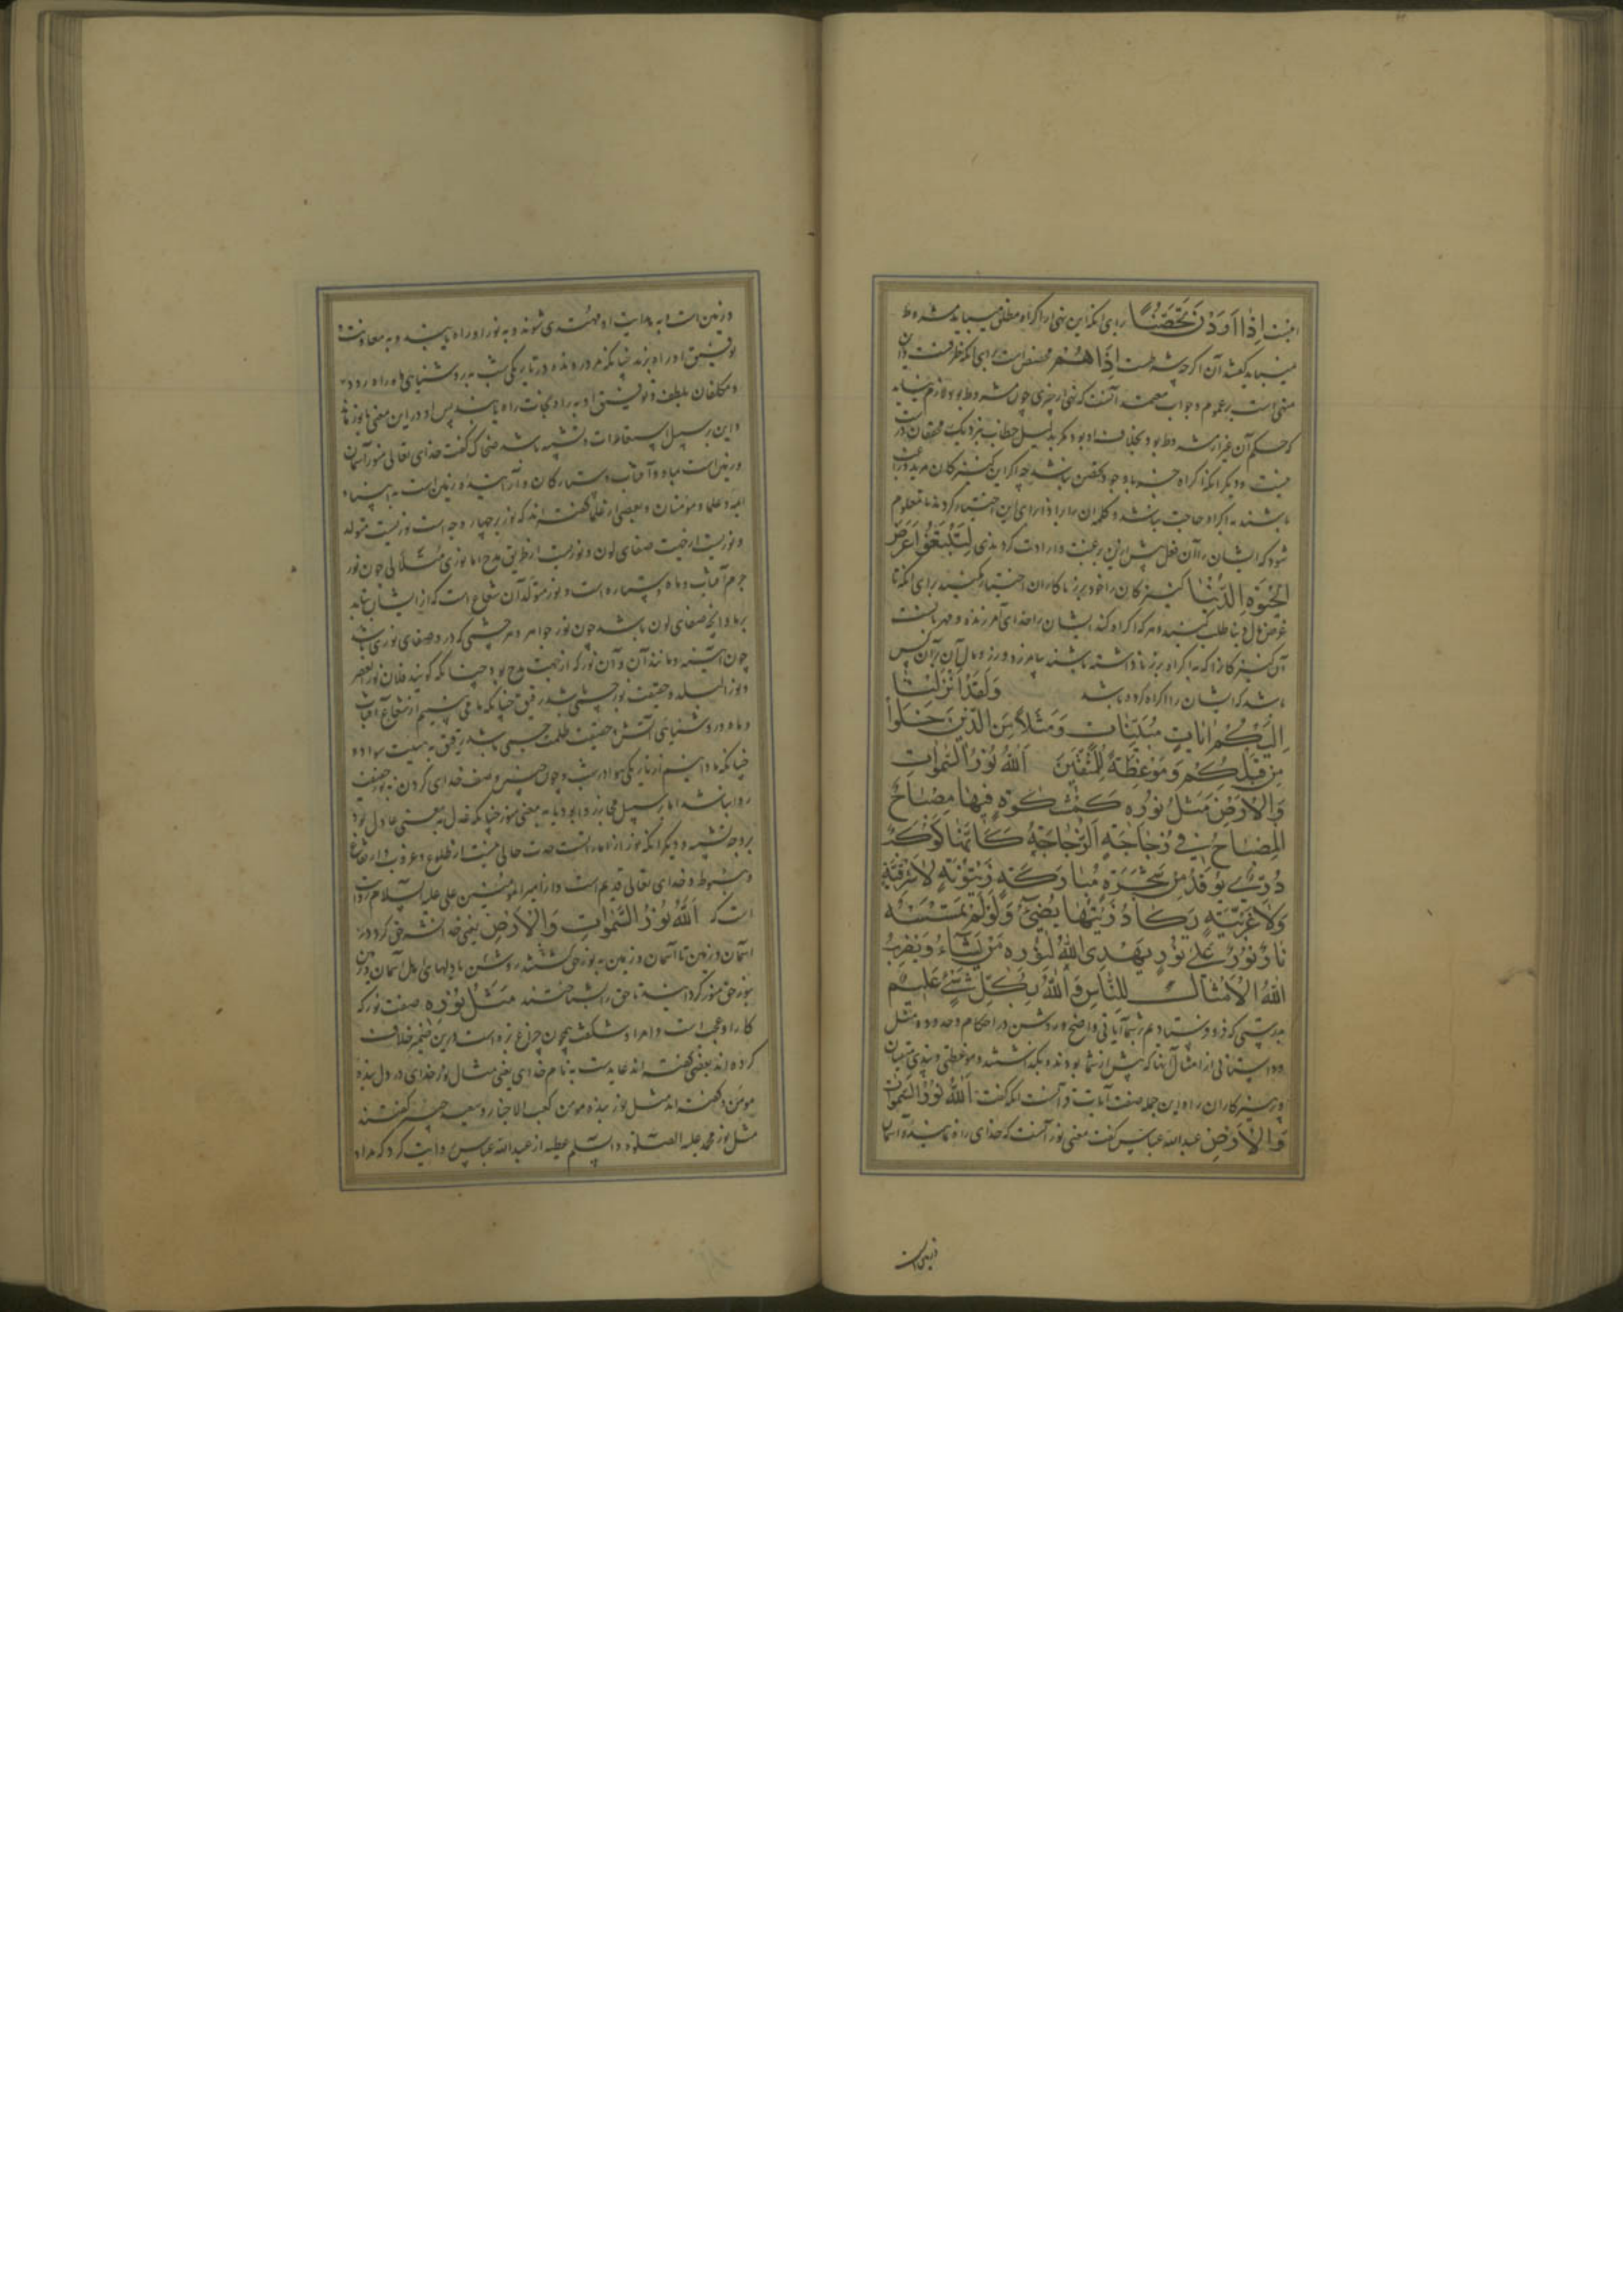 اینت إِذَا أَرَدْنَ تَحَصُّنًا برای آنکه این نهی را اکراه مطلق میباید مشروط
نمیباید گفت آن اگرچه شرطست إِذَا هُمْ مخصص است برای آنکه ظرفست
مبنی است بر عموم وجواب معتمد آنست که نهی از چیزی چون مشروط بود لازم نیاید
که حکم آن غیر از شرط بود بخلاف او بود مگر بدلیل خطاب بنزدیک محققان درست
نیست ودیگر آنکه اکراه جز باوجود تحصن نباشد چه اگر این کنیزکان مرید
باشند به اکراه حاجت نباشد
شود که ایشان را آن فعل پیش ازین رغبت وارادت کردندی لِتَبْتَغُوا عَرَضَ
الْحَيٰوةِ الدُّنْيَا کنیزکان را خود بر زنا کاران اختیار مکنید برای آنکه تا
عرض مال دنیا طلب کنید وهر که اکراه کند ایشان را خدای آمرزنده ومهربانست
آن کنیزکان را که به اکراه بر زنا داشته باشند بیامرزد ووزر ووبال آن بر آن کس
باشد که ایشان را اکراه کرده باشد وَلَقَدْ أَنْزَلْنَا
إِلَيْكُمْ اٰيَاتٍ مُبَيِّنَاتٍ وَمَثَلًا مِنَ الَّذِينَ خَلَوْا
مِنْ قَبْلِكُمْ وَمَوْعِظَةً لِلْمُتَّقِينَ اَللّٰهُ نُورُ السَّمٰوَاتِ
وَالْأَرْضِ مَثَلُ نُورِهِ كَمِشْكٰوةٍ فِيهَا مِصْبَاحٌ
الْمِصْبَاحُ فِي زُجَاجَةٍ اَلزُّجَاجَةُ كَأَنَّهَا كَوْكَبٌ
دُرِّيٌّ يُوقَدُ مِنْ شَجَرَةٍ مُبَارَكَةٍ زَيْتُونَةٍ لَا شَرْقِيَّةٍ
وَلَا غَرْبِيَّةٍ يَكَادُ زَيْتُهَا يُضِيءُ وَلَوْ لَمْ تَمْسَسْهُ
نَارٌ نُورٌ عَلَى نُورٍ يَهْدِي اللّٰهُ لِنُورِهِ مَنْ يَشَاءُ وَيَضْرِبُ
اللّٰهُ الْأَمْثَالَ لِلنَّاسِ وَاللّٰهُ بِكُلِّ شَيْءٍ عَلِيمٌ
بدرستی که فرو فرستادیم بشما آیاتی واضح وروشن در احکام وحدود ومثل
وداستانی از امثال آنها که پیش از شما بودند وبگذشتند وموعظتی وپندی متقیان
وپرهیزکاران را واین جمله صفت آیات قرآنست آنکه گفت اَللّٰهُ نُورُ السَّمٰوَاتِ
وَالْأَرْضِ عبدالله عباس گفت معنی نور آنست که خدای راه نماینده آسمان
وزمین است
وزمین است وبه هدایت او مهتدی شوند وبه نور او راه یابند وبه معاونت و
توفیق او راه برند چنانکه مرد رونده در تاریکی شب به روشنایی راه رود
ومکلفان بلطف وتوفیق او به راه نجات راه یابند پس او در این معنی
واین بر سبیل استعارت وتشبیه باشد ضحاک گفت خدای تعالی منور آسمان
وزمین است بماه وآفتاب وستارگان وآراینده زمین است به انبیاء
ایمه وعلما ومومنان وبعضی از علما گفته اند که نور بر چهار وجه است نوریست متولد
ونوریست از جهت صفای لون ونوریست از طریق مدح اما نوری متلألی چون نور
جرم آفتاب وماه وستاره است ونور متولد آن شعاع است که از ایشان بتابد
بر ما وآنچه صفای لون باشد چون نور جواهر وهر جسمی که در و صفای نوری باشد
چون آبگینه ومانند آن وآن نور که از جهت مدح بود چنانکه گویند فلان نور العصر
ونور البلد وحقیقت نور جسمی باشد رقیق چنانکه ما می بینیم از شعاع آفتاب
وماه وروشنیایی آتش وحقیقت ظلمت جسمی باشد رقیق به هیئت سواد
چنانکه ما دانیم از تاریکی هوا در شب وچون چنین وصف خدای کردن به حقیقت
روا نباشد اما بر سبیل مجاز روا بود یا به معنی منور چنانکه عدل به معنی عادل بود
بر وجه تشبیه ودیگر آنکه نور از امارات حدث خالی نیست از طلوع وغروب وارتفاع
وهبوط وخدای تعالی قدیم است واز امیر المؤمنین علی علیه السلام روایت
است که اَللّٰهُ نُورُ السَّمٰوَاتِ وَالْأَرْضِ یعنی خدا نشر حق کرد در
آسمان وزمین تا آسمان وزمین به نور حق گشتند روشن یا دلهای اهل آسمان وزمین
بنور حق منور گردانید تا حق را بشناختند مَثَلُ نُورِهِ صفت نور که
کار او عجب است وامر او شگفت همچون چراغ زه است درین ضمیر خلافت
کرده اند بعضی گفته اند عاید است به نام خدای یعنی مثال نور خدای در دل بنده
مومن وگفته اند مثل نور بنده مومن کعب الاحبار وسعید جبیر گفتند
مثل نور محمد علیه الصلوة والسلم عطیه از عبدالله عباس روایت کرد که مراد